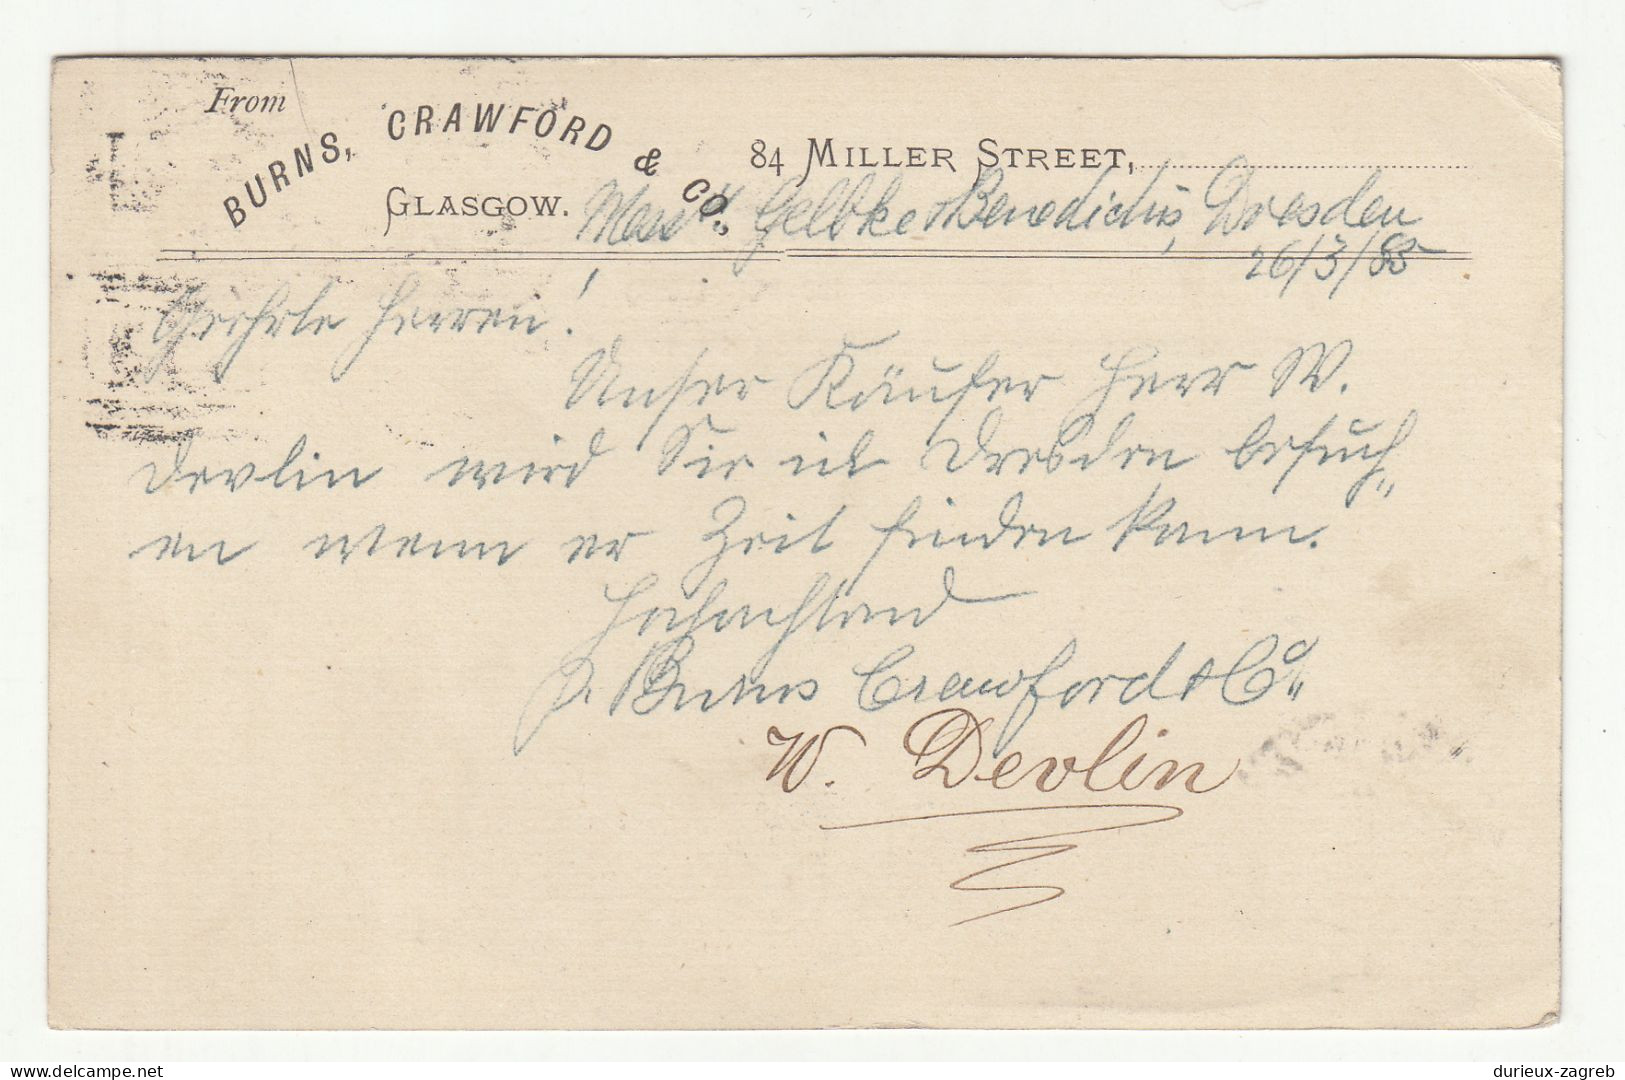 From
BURNS, CRAWFORD & CO., 84 MILLER STREET,
GLASGOW. Messrs Gelbke & Benedictus, Dresden
26/3/85
Geehrte Herren!
Unser Käufer Herr W.
Devlin wird Sie in Dresden besuch-
en wenn er Zeit finden kann.
Hochachtend
p. Burns Crawford & Co
W. Devlin
durieux-zagreb
delcampe.net